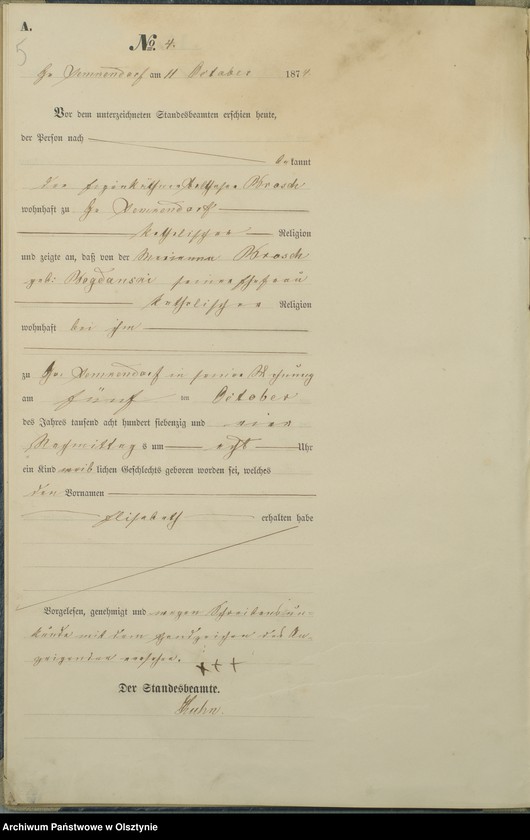 A.
5
No. 4.
Gr. Lemkendorf am 11 October 1874.
Vor dem unterzeichneten Standesbeamten erschien heute,
der Person nach
bekannt
der Eigenkäthner Balthasar Brosch
wohnhaft zu Gr. Lemkendorf
katholischer Religion
und zeigte an, daß von der Marianna Brosch
geb: Bogdanski seiner Ehefrau
katholischer Religion
wohnhaft bei ihm
zu Gr. Lemkendorf in seiner Wohnung
am fünf ten October
des Jahres tausend acht hundert siebenzig und vier
Nachmittags um acht Uhr
ein Kind weiblichen Geschlechts geboren worden sei, welches
den Vornamen
Elisabeth erhalten habe
Vorgelesen, genehmigt und wegen Schreibensun-
kunde mit dem Handzeichen des An-
zeigenden versehen.
+++
Der Standesbeamte.
Kuhn.
Archiwum Państwowe w Olsztynie